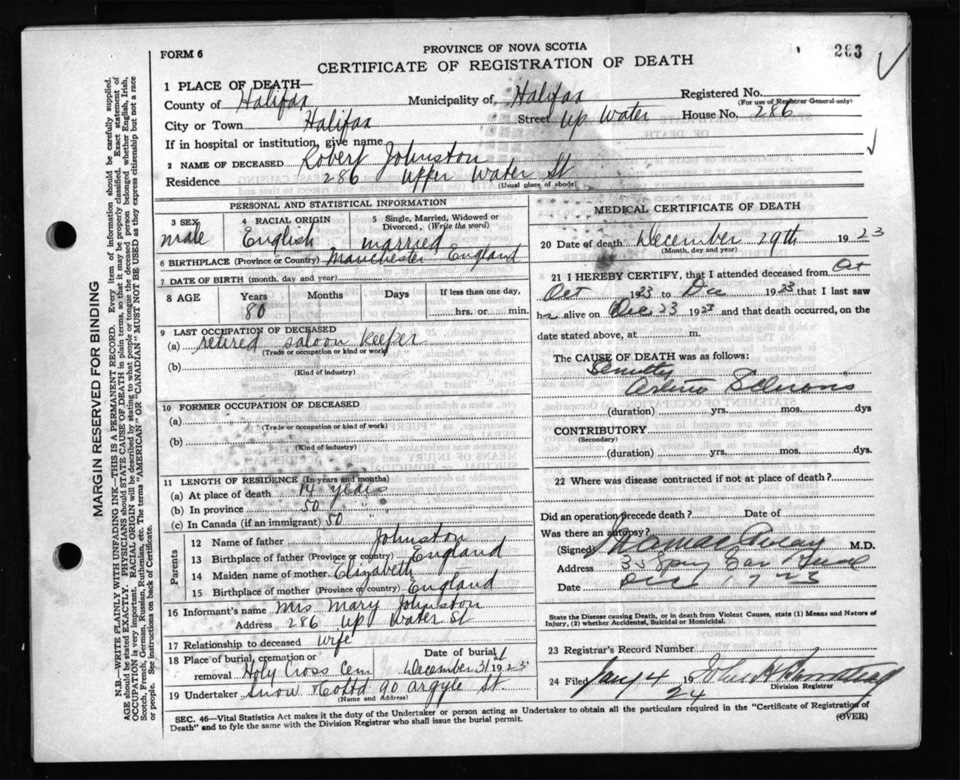 FORM 6
PROVINCE OF NOVA SCOTIA
CERTIFICATE OF REGISTRATION OF DEATH
263
1 PLACE OF DEATH—
County of Halifax Municipality of Halifax Registered No.
(For use of Registrar General only)
City or Town Halifax Street Up Water House No. 286
If in hospital or institution, give name
2 NAME OF DECEASED Robert Johnston
Residence 286 Upper Water St
(Usual place of abode)
PERSONAL AND STATISTICAL INFORMATION
3 SEX 4 RACIAL ORIGIN 5 Single, Married, Widowed or Divorced, (Write the word)
male English married
6 BIRTHPLACE (Province or Country) Manchester England
7 DATE OF BIRTH (month, day and year)
8 AGE Years Months Days If less than one day,
80 hrs. or min.
9 LAST OCCUPATION OF DECEASED
(a) retired saloon keeper
(Trade or occupation or kind or work)
(b)
(Kind of industry)
10 FORMER OCCUPATION OF DECEASED
(a)
(Trade or occupation or kind of work)
(b)
(Kind of industry)
11 LENGTH OF RESIDENCE (In years and months)
(a) At place of death 14 years
(b) In province 50 " "
(c) In Canada (if an immigrant) 50 "
Parents
12 Name of father Johnston
13 Birthplace of father (Province or country) England
14 Maiden name of mother Elizabeth
15 Birthplace of mother (Province or country) England
16 Informant's name Mrs Mary Johnston
Address 286 Up Water St
17 Relationship to deceased wife
18 Place of burial, cremation or removal Holy Cross Cem Date of burial December 31st 1923
19 Undertaker Snow & Co Ltd 90 Argyle St
(Name and Address)
MEDICAL CERTIFICATE OF DEATH
20 Date of death December 29th 1923
(Month, day and year)
21 I HEREBY CERTIFY, that I attended deceased from Oct
Oct 1923 to Dec 1923 that I last saw
h alive on Dec 23 1923 and that death occurred, on the
date stated above, at m.
The CAUSE OF DEATH was as follows:
Senility
(duration) yrs. mos. dys
CONTRIBUTORY
(Secondary)
(duration) yrs. mos. dys.
22 Where was disease contracted if not at place of death?
Did an operation precede death? Date of
Was there an autopsy?
(Signed) M.D.
Address 35 Spring Gar Road
Date
State the Disease causing Death, or in death from Violent Causes, state (1) Means and Nature of
Injury, (2) whether Accidental, Suicidal or Homicidal.
23 Registrar's Record Number
24 Filed Jany 4 19 24 John
Division Registrar
SEC. 46—Vital Statistics Act makes it the duty of the Undertaker or person acting as Undertaker to obtain all the particulars required in the "Certificate of Registration of
Death" and to fyle the same with the Division Registrar who shall issue the burial permit.
(OVER)
MARGIN RESERVED FOR BINDING
N.B.—WRITE PLAINLY WITH UNFADING INK—THIS IS A PERMANENT RECORD. Every item of information should be carefully supplied.
AGE should be stated EXACTLY. PHYSICIANS should STATE CAUSE OF DEATH in plain terms, so that it may be properly classified. Exact statement of
OCCUPATION is very important. RACIAL ORIGIN will be described by stating to what people or tongue the deceased person belonged whether English, Irish,
Scotch, French, German, Russian, Ruthenian, etc. The terms "AMERICAN" OR "CANADIAN" MUST NOT BE USED as they express citizenship but not a race
or people. See instructions on back of Certificate.